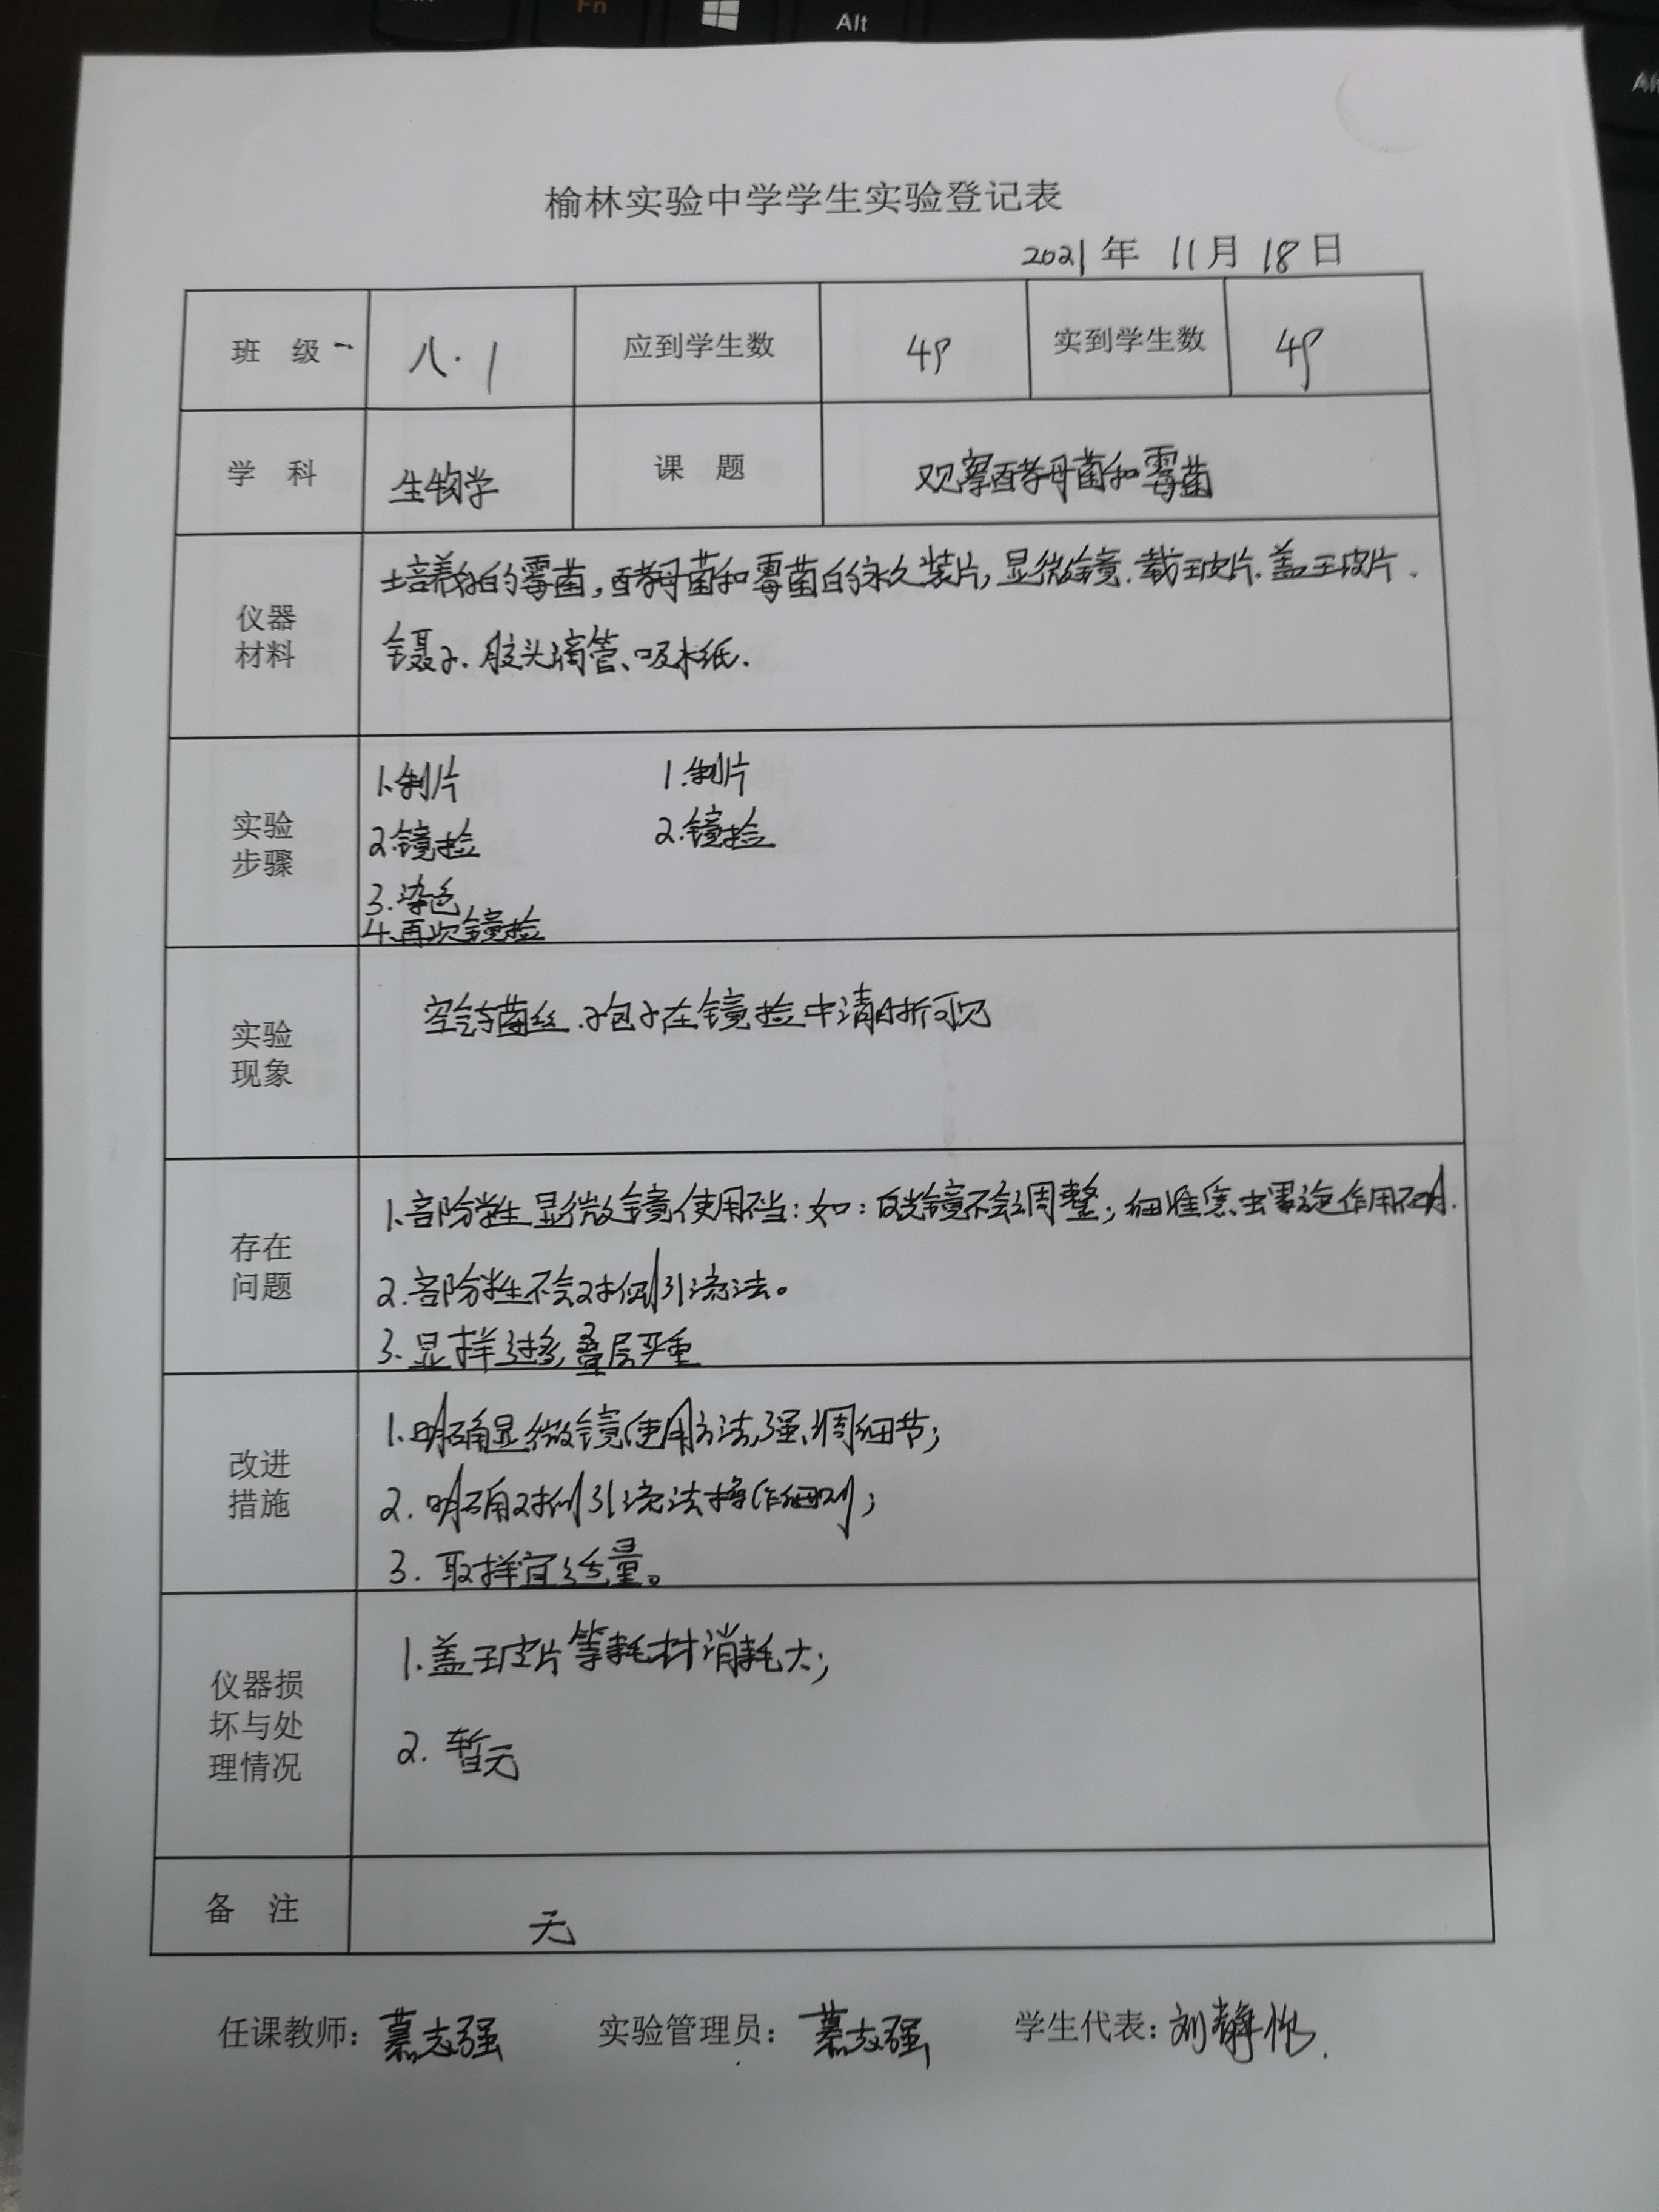 Fn
Alt
榆林实验中学学生实验登记表
2021年 11月 18日
班 级 八.1 应到学生数 49 实到学生数 49
学 科 生物学 课 题 观察酵母菌和霉菌
仪器材料
培养好的霉菌,酵母菌和霉菌的永久装片,显微镜.载玻片.盖玻片.
镊子.胶头滴管、吸水纸.
实验步骤
1.制片 1.制片
2.镜检 2.镜检
3.染色
4.再次镜检
实验现象
空气菌丝.孢子在镜检中清晰可见
存在问题
1.部份学生显微镜使用不当:如:反光镜不会调整;细准焦螺旋作用不明.
2.部份学生不会对侧引流法。
3.显样过多,叠层严重
改进措施
1.明确显微镜使用方法,强调细节;
2.明确对侧引流法操作细则;
3.取样宜适量。
仪器损坏与处理情况
1.盖玻片等耗材消耗大;
2.暂无
备 注 无
任课教师:慕志强 实验管理员:慕志强 学生代表:刘静怡.